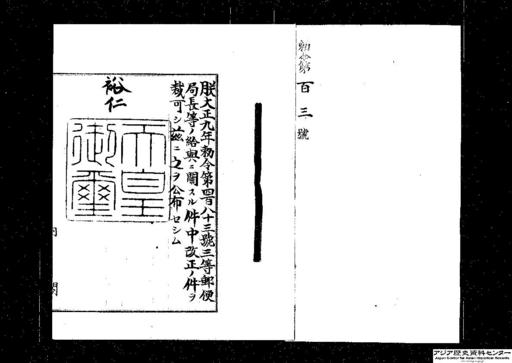 勅令第百三號
朕大正九年勅令第四百八十三號三等郵便
局長等ノ給與ニ關スル件中改正ノ件ヲ
裁可シ茲ニ之ヲ公布セシム
裕仁
天皇
御璽
内閣
アジア歴史資料センター
Japan Center for Asian Historical Records